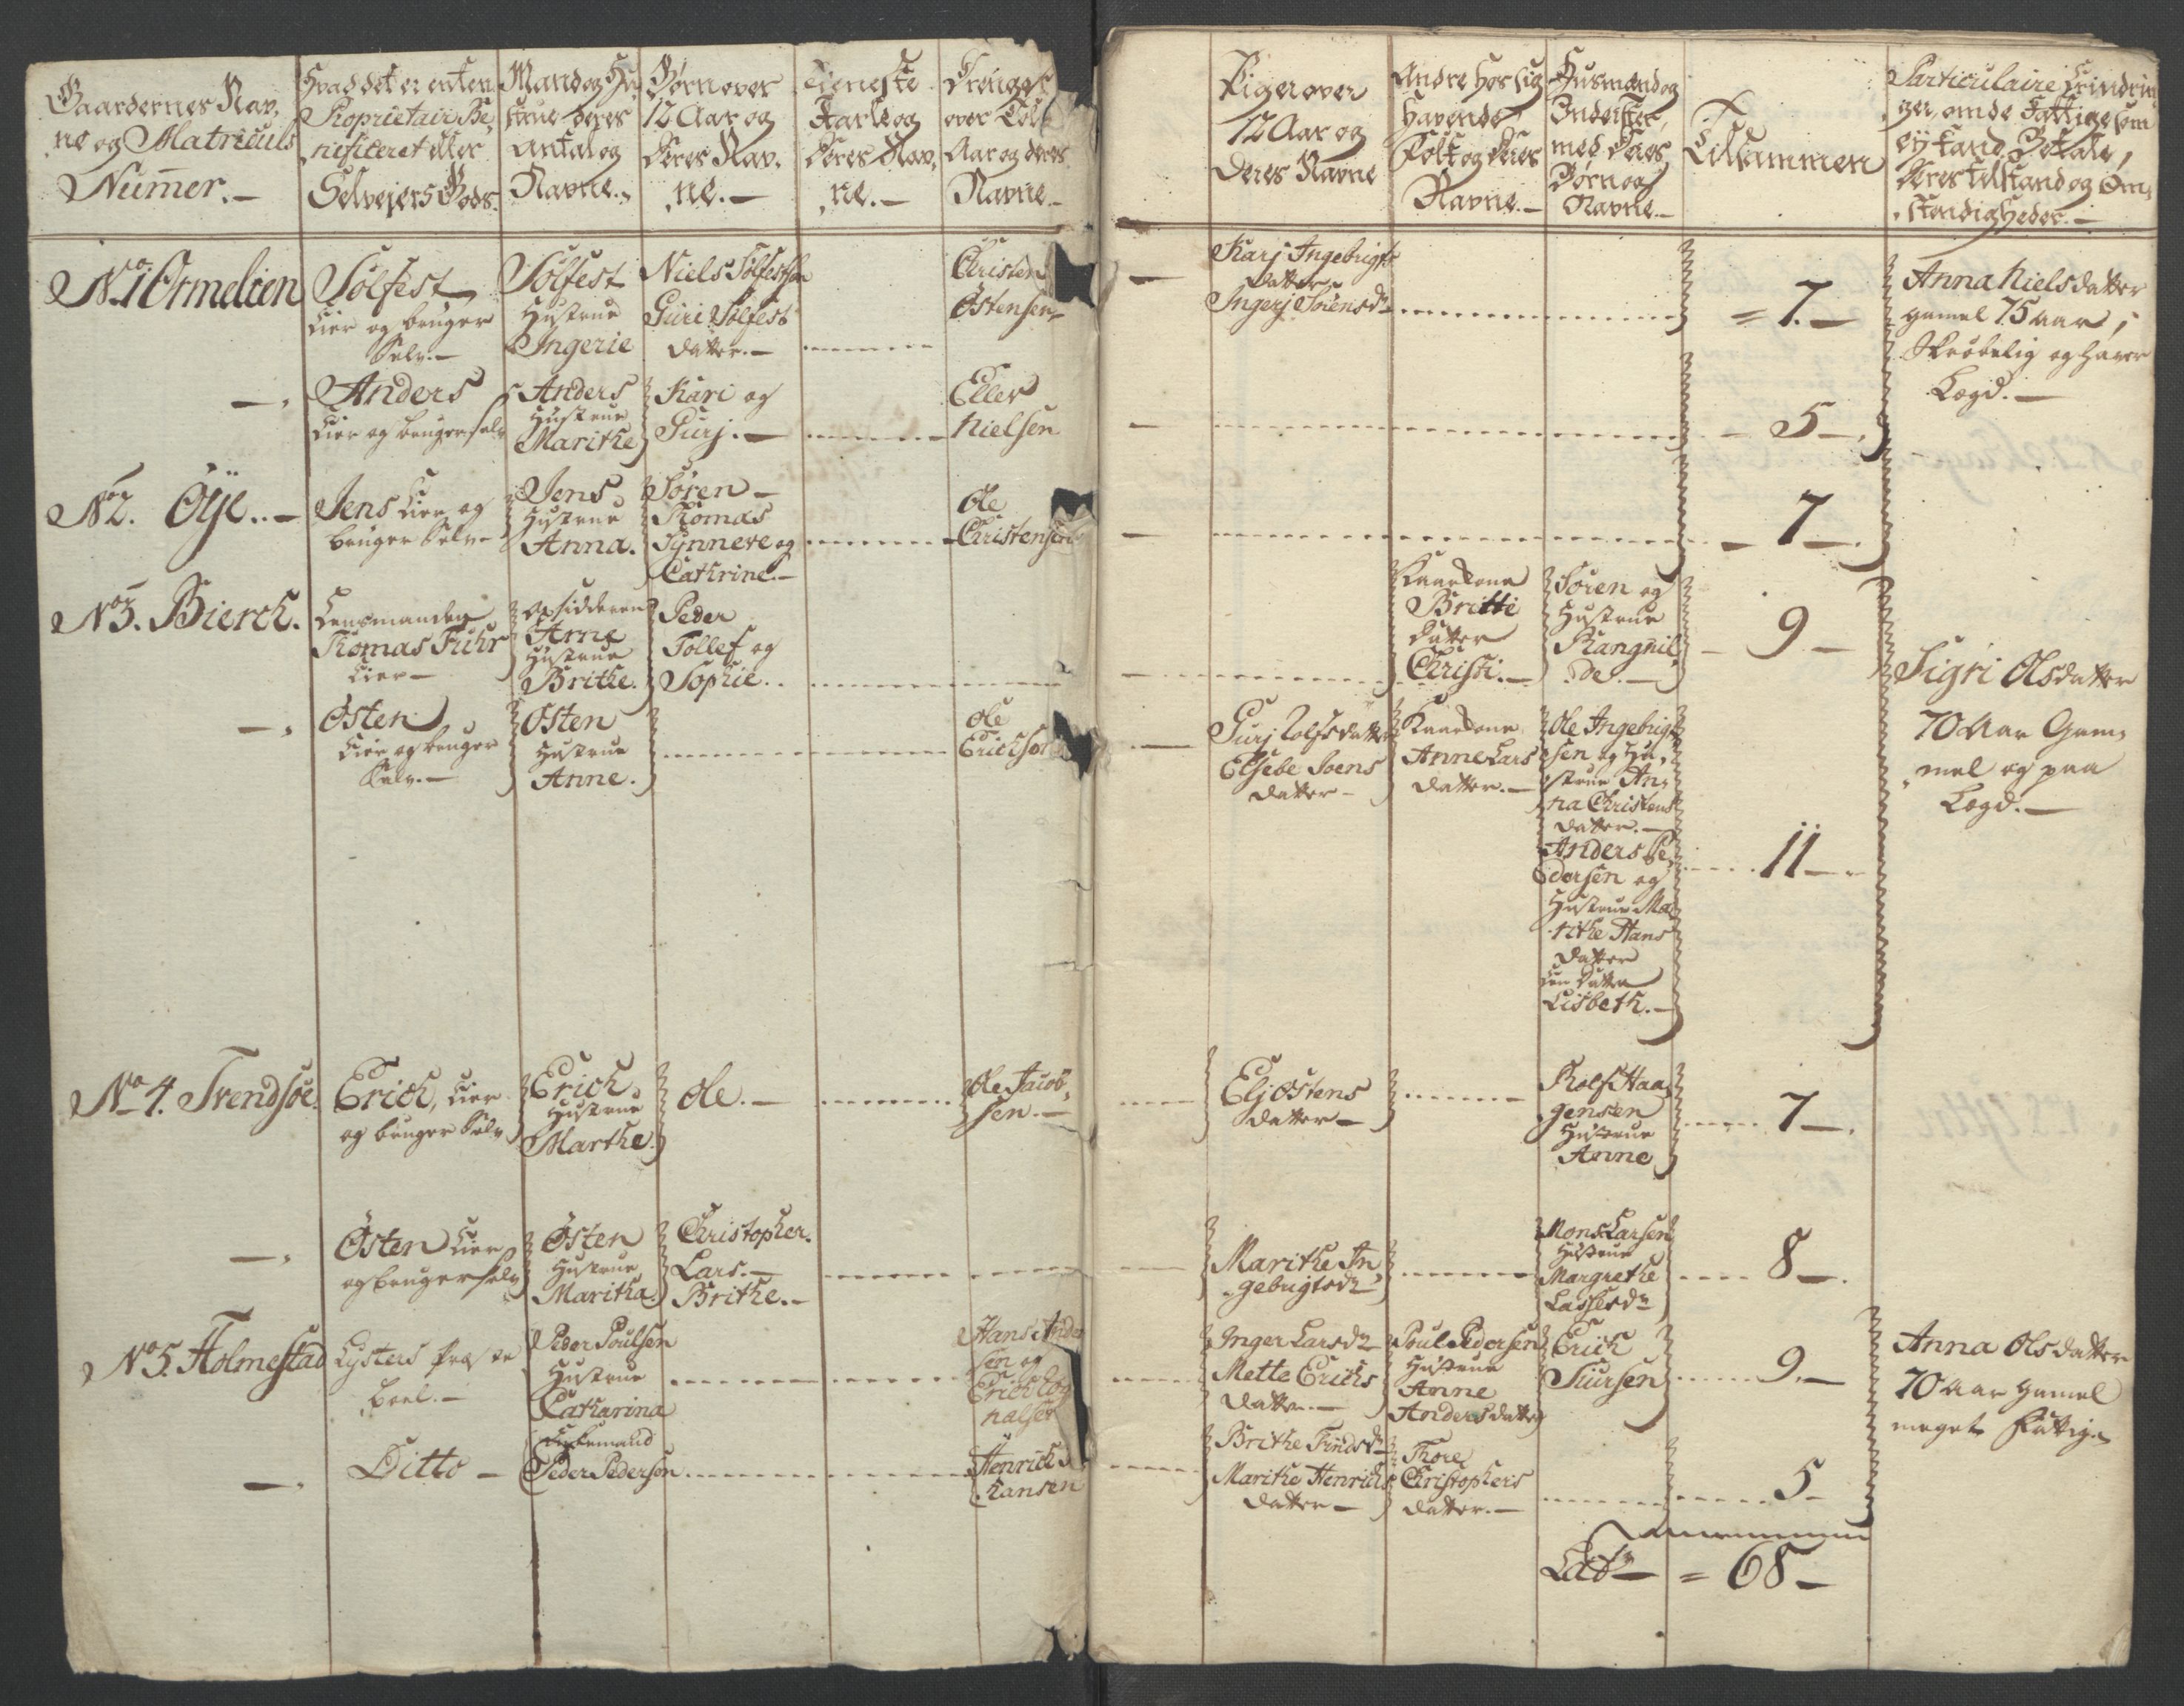 Gaardernes Nav,
ne og Matriculs
Num̄er. —
Hvad det er enten
Proprietair Be,
nificeret eller
Selvejer Gods.
Mand og Hu,
strue deres
Antal og
Navne.
Børn over
12 Aar og
Deres Nav,
ne. —
Tieneste
Karle og
Deres Nav,
ne. —
Drenge
over Tolf
Aar og deres
Navne —
Piger over
12 Aar og
Deres Navne
Andre Hos sig
Havende
Folk og Deres
Navne. —
Husmænd og
Inderster,
med Deres
Børn og
Navne. —
Tilsammen
Particulaire Erindrin
ger, om de Fattige som
ey kand Betale,
Deres tilstand og Om,
stændigheder. —
No. 1 Ormelien
Sølfest
Eier og bruger
Selv. —
Sølfest
Hustrue
Ingerie
Niels Sølfestsen
Guri Sølfest
datter. —
Christen
Østensen
Karj Ingebrigts
Datter
Ingerj Sørensdr
= 7. —
Anna Nielsdatter
gamel 75 aar,
Skrøbelig og haver
Lægd. —
Anders
Eier og bruger selv
Anders
Hustrue
Marithe
Kari og
Gurj. —
Eller
Nielsen
5 —
No 2. Öÿe. . —
Jens Eier og
bruger Selv —
Jens
Hustrue
Anna.
Søren —
Thomas
Synneve og
Cathrine. —
Ole
Christensen
7 —
No 3. Bierch.
Lensmanden
Thomas Fuhr
Eier —
Opsidderen
Arne
Hustrue
Brithe.
Peder
Tollef og
Sophie. .
Kaarkone
Britte
Datter
Christi. —
Søren og
Hustrue
Rangnil,
de. —
9 —
Sigri Olsdatter
70 Aar Gam,
mel og paa
Lægd. —
Østen
Eier og bruger
Selv. —
Østen
Hustrue
Anne.
Ole
Erichsen
Gurj Rolfsdatter
Elsebe Joens
datter —
Kaarkone
Anne Lars
datter. —
Ole Ingebrigt
sen og Hu,
strue An,
na Christens
datter. —
Anders Pe,
dersen og
Hustrue Ma
rithe Hans
datter
Een Datter
Lisbeth. —
11 —
No 4. Trendsøe.
Erich, Eier
og bruger Selv
Erich
Hustrue
Marthe.
Ole. —
Ole Jacob,
sen. —
Elj Østens
datter —
Rolf Haa,
gensen
Hustrue
Anne
7 —
Østen Eier
og bruger selv
Østen
Hustrue
Maritha.
Christopher.
Lars. —
Brithe. —
Marithe In
gebrigtsdr
Mons Larsen
Hustrue
Margrethe
Lassesdr
8 —
No 5. Holmestad
Lysters Præste
boel. —
Peder Poulsen
Hustrue
Catharina
Hans Ander
sen og
Erich
Inger Larsdr
Mette Erichs
datter. —
Poul Pedersen
Hustrue
Anne
Andersdatter
Erich
Siursen
9. —
Anna Olsdatter
70 Aar gamel
meget Fattig.
Ditto —
Enkemand
Peder Pedersen
Henrich
Hansen
Brithe Findsdr
Marithe Henrichs
datter —
Thore
Christophers
datter. —
5 —
Lats — = 68 —